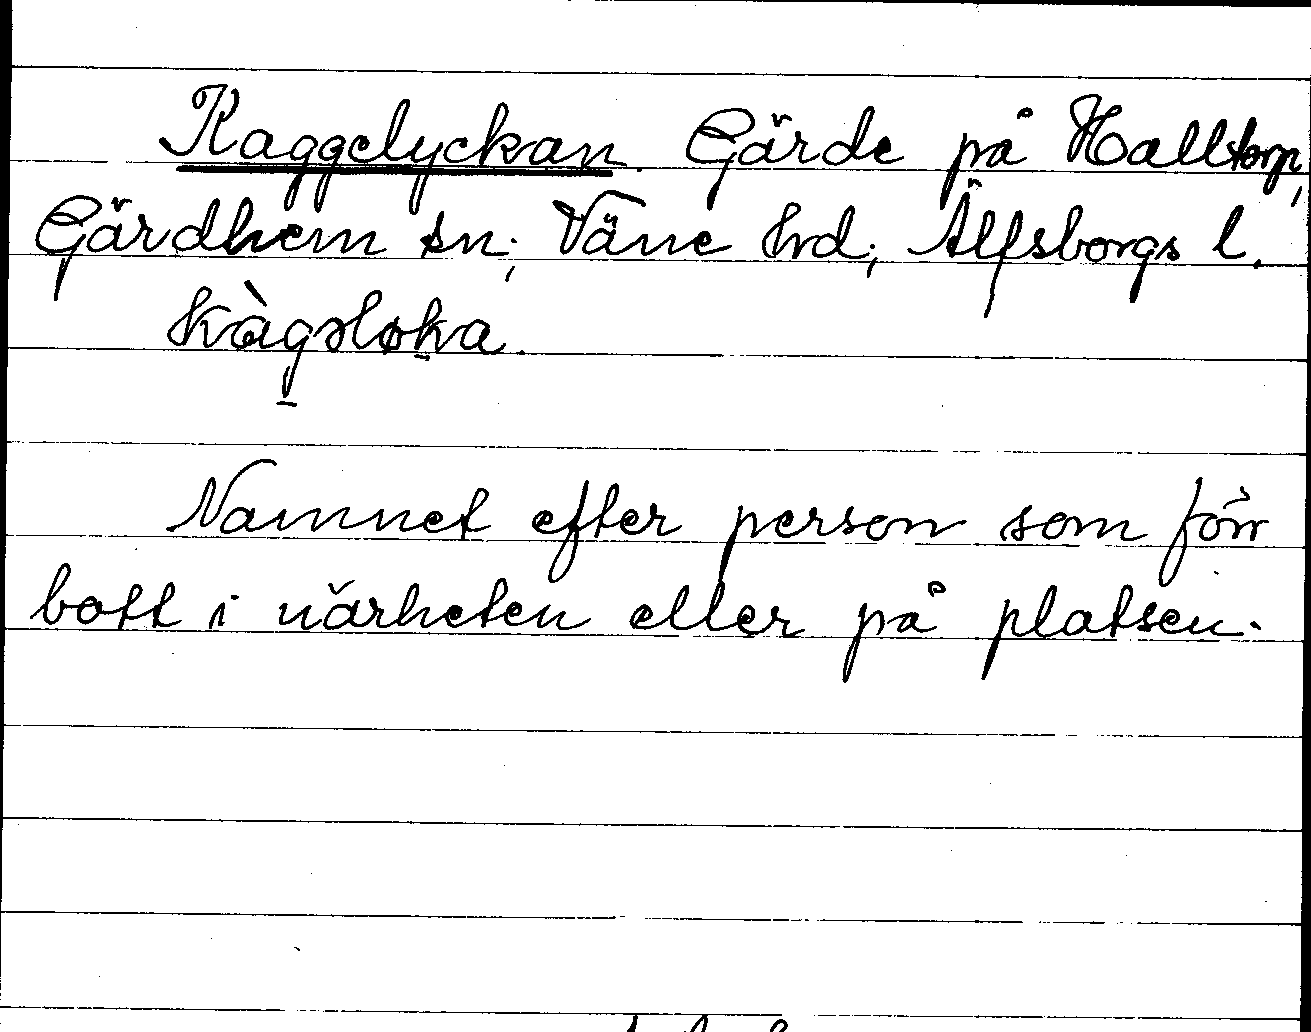 Kaggelyckan. Gärde på Hallstorp,
Gärdhem sn; Väne hrd; Älfsborgs l.
kàgəløka.
Namnet efter person som förr
bott i närheten eller på platsen.